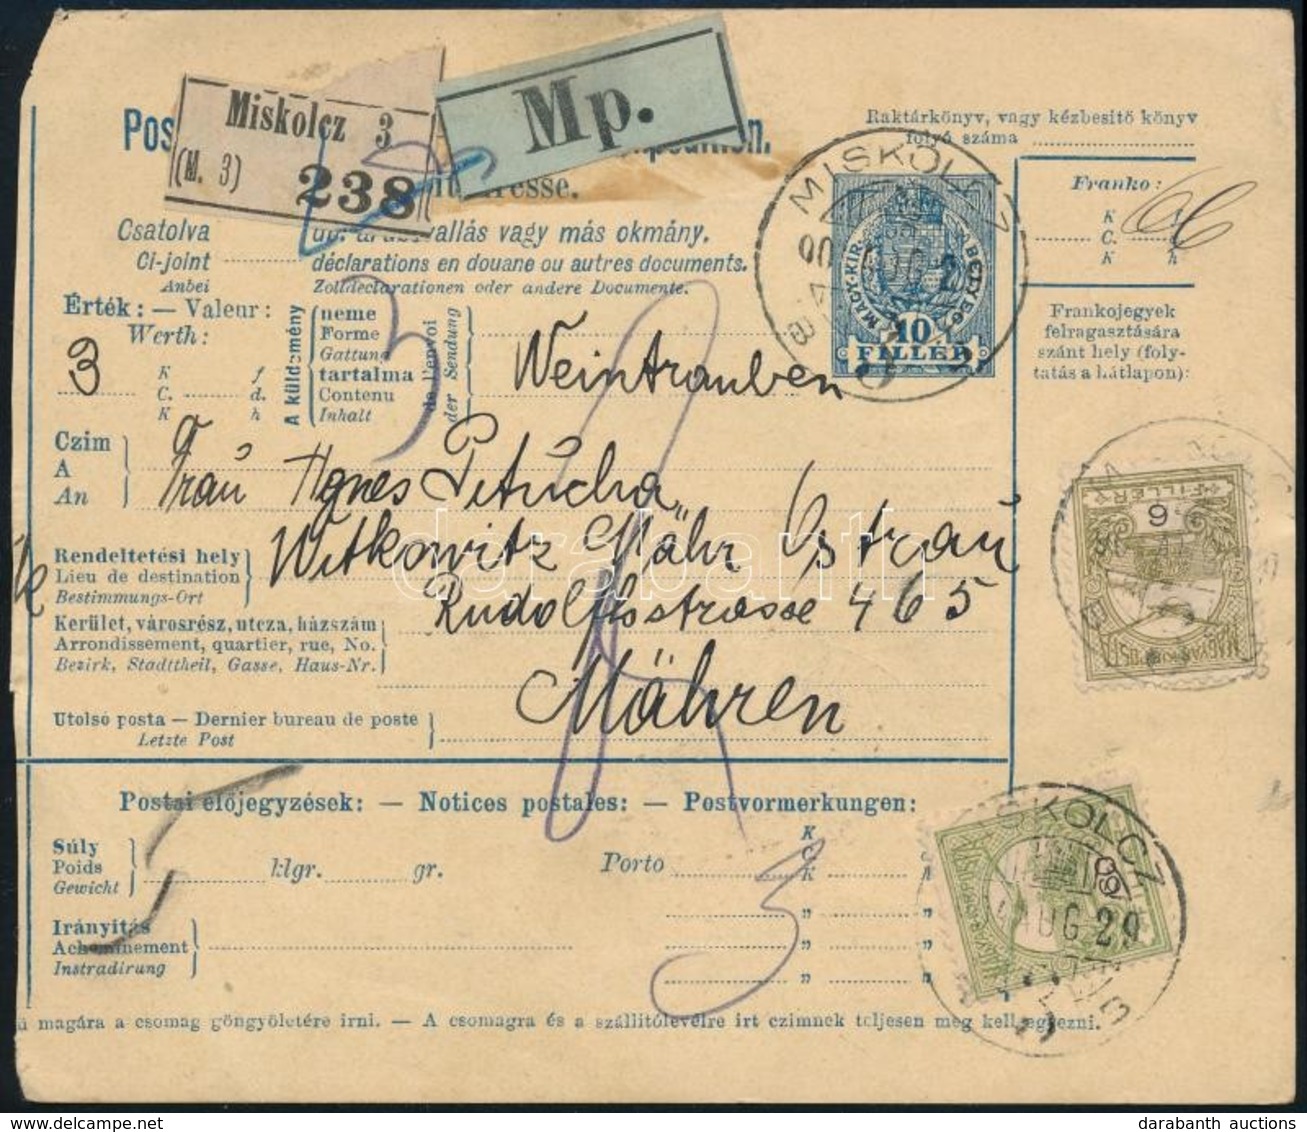 Miskolcz 3
(M. 3) 238
Mp.
Raktárkönyv, vagy kézbesitő könyv
folyó száma
Franko:
K f
C.
K h
66
MISKOLCZ
AUG 2
MAGY. KIR. BÉLYEG
10
FILLÉR
Csatolva
Ci-joint
Anbei
vallás vagy más okmány.
déclarations en douane ou autres documents.
Zolldeclarationen oder andere Documente.
Érték: — Valeur:
Werth:
3
K f
C. d.
K h
A küldemény
neme
Forme
Gattung
tartalma
Contenu
Inhalt
de l'envoi
der Sendung
3
Weintrauben
Frankojegyek
felragasztására
szánt hely (foly-
tatás a hátlapon):
Czim
A
An
Frau Agnes Petucha
Rendeltetési hely
Lieu de destination
Bestimmungs-Ort
Witkowitz Mähr Ostrau
Kerület, városrész, utcza, házszám
Arrondissement, quartier, rue, No.
Bezirk, Stadttheil, Gasse, Haus-Nr.
Rudolfsstrasse 465
Mähren
Utolsó posta — Dernier bureau de poste
Letzte Post
6
FILLÉR
MAGYAR KIR. POSTA
Postai előjegyzések: — Notices postales: — Postvormerkungen:
Súly
Poids
Gewicht
5
klgr. gr.
Porto
K
C.
K
3
Irányitás
Acheminement
Instradirung
MISKOLCZ
909
AUG 29
magára a csomag göngyöletére irni. — A csomagra és a szállitólevélre irt czimnek teljesen meg kell egyezni.
darabanth
darabanth auctions